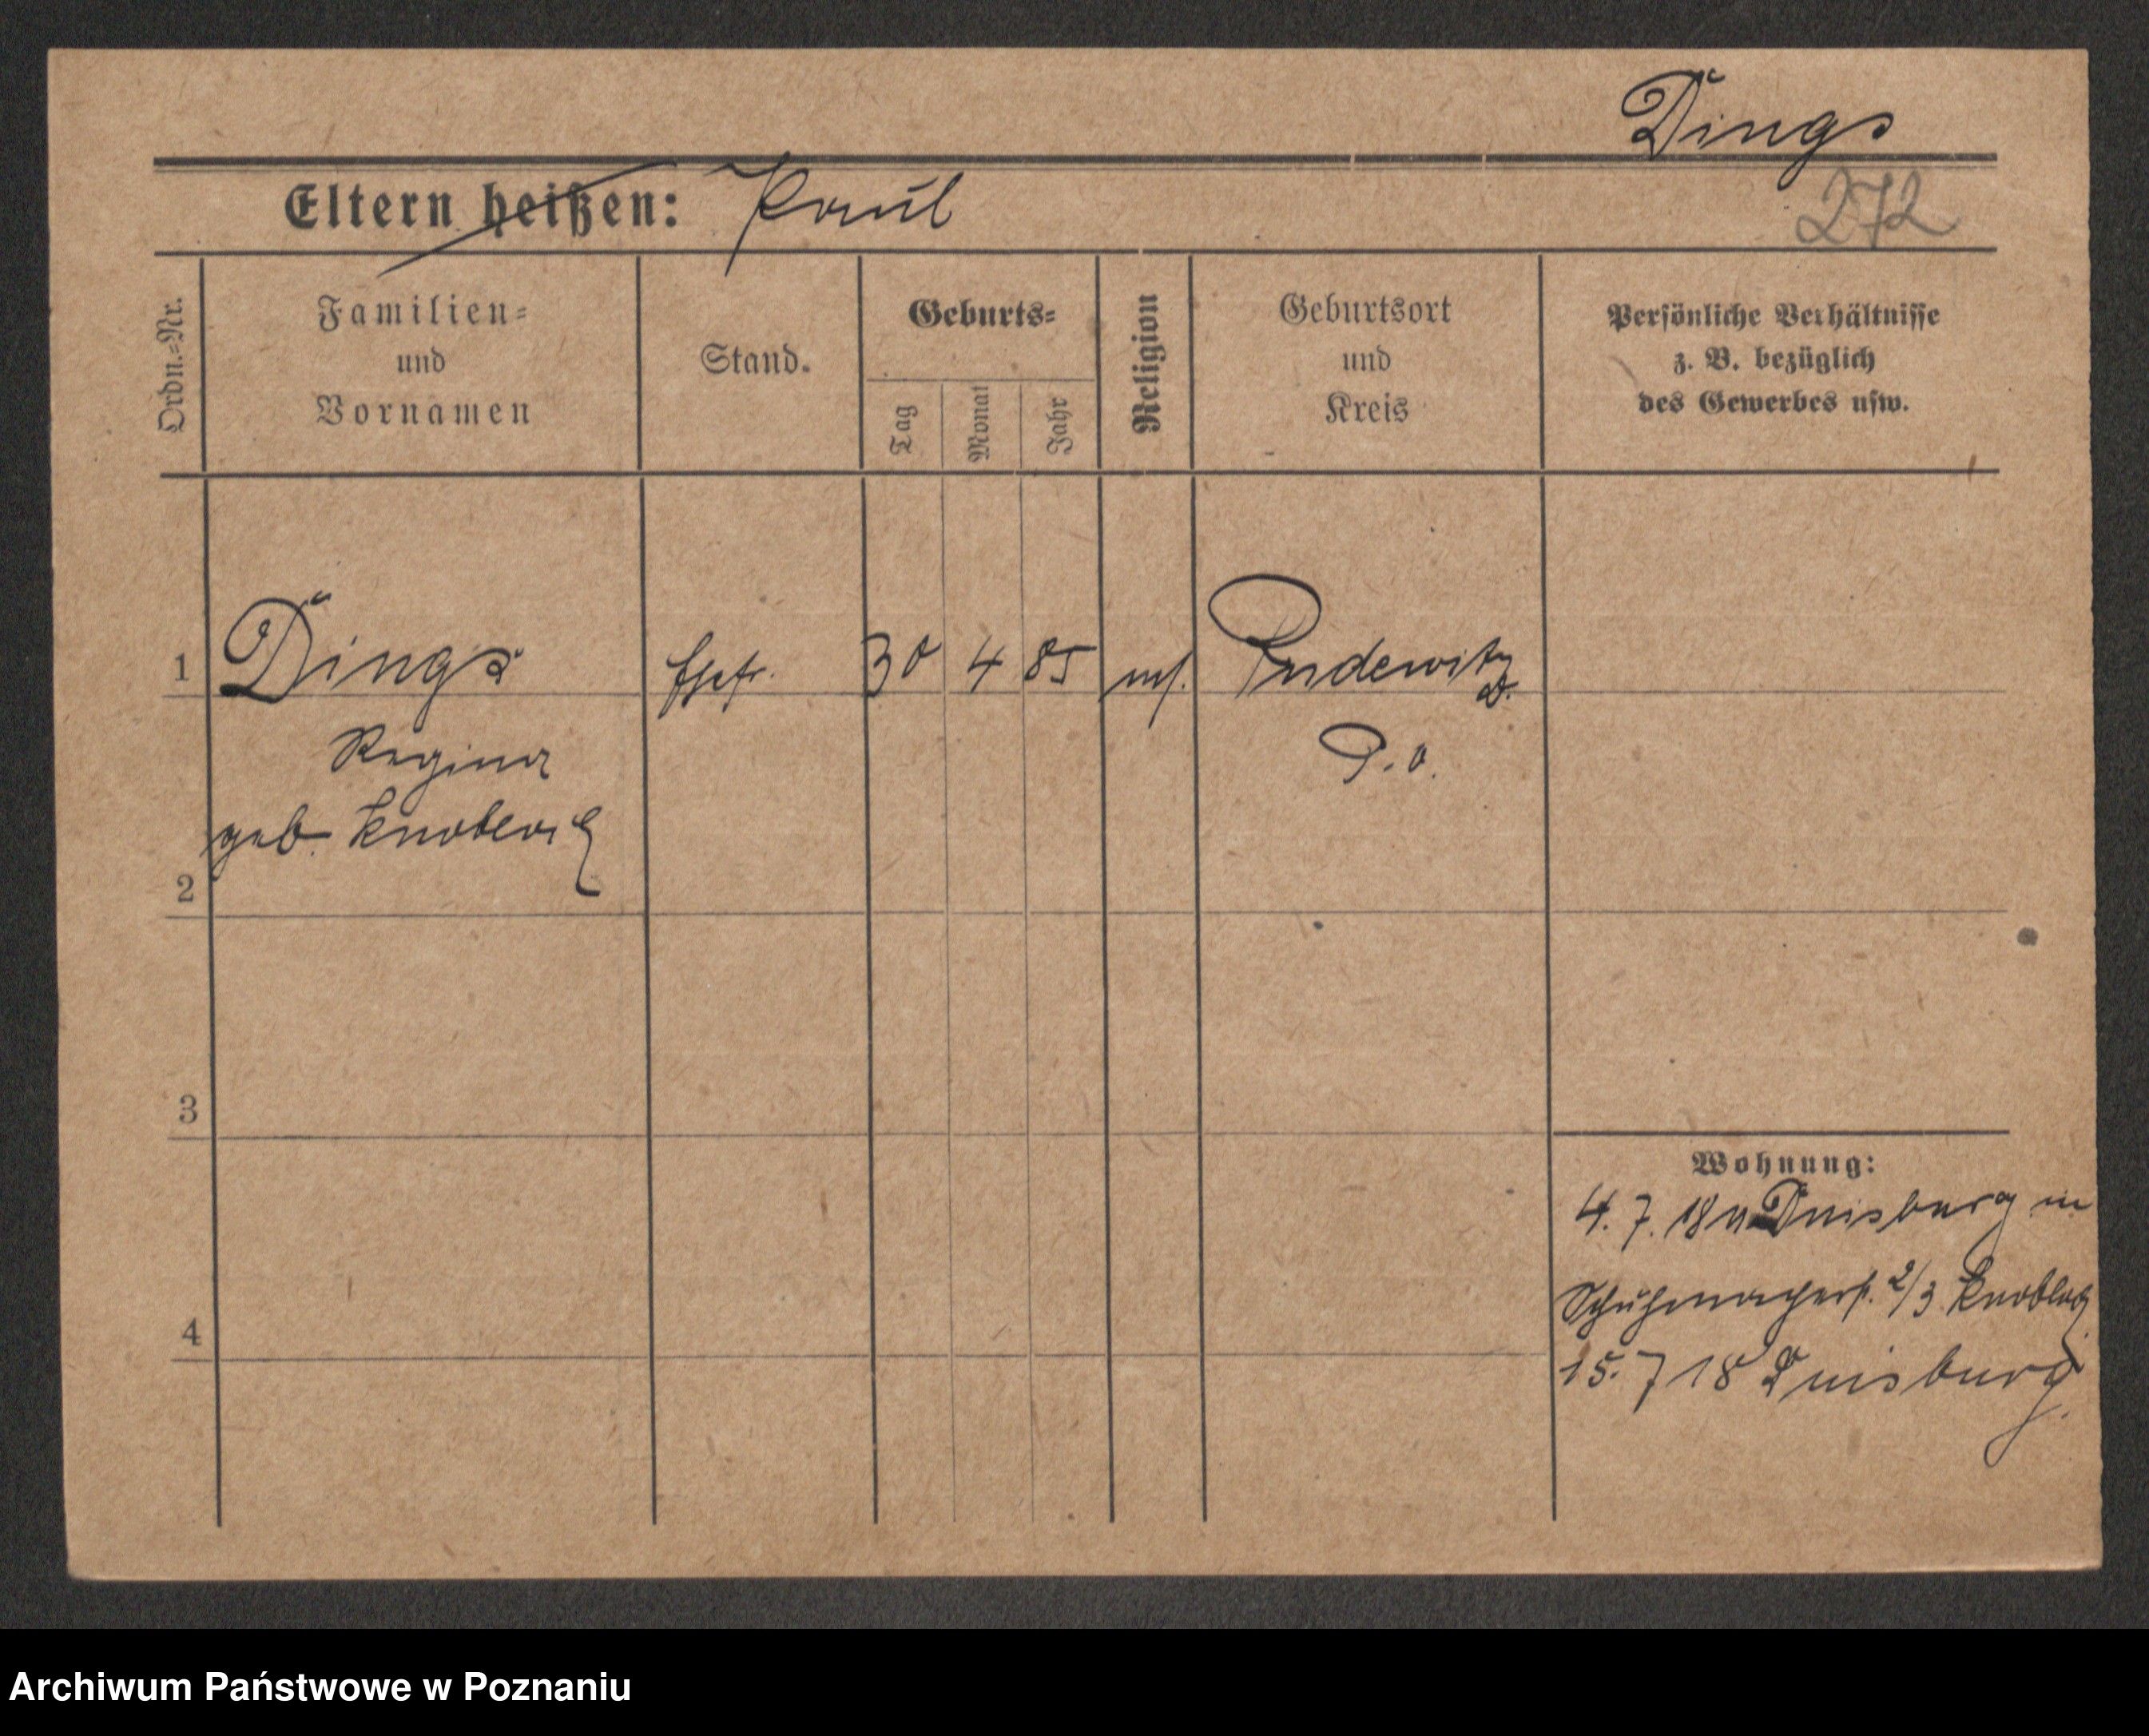 Dings
Eltern heißen: Paul
272
Ordn.=Nr.
Familien=
und
Vornamen
Stand.
Geburts=
Tag
Monat
Jahr
Religion
Geburtsort
und
Kreis
Persönliche Verhältnisse
z. B. bezüglich
des Gewerbes usw.
1 Dings Ehefr. 30 4 85 Pudewitz
Regina P. O.
geb. Knobloch
2
3
4
Wohnung:
4. 7. 18 Duisburg in
Schuhmacherstr. 2/3 Knobloch
15. 7 18 Duisburg
Archiwum Państwowe w Poznaniu